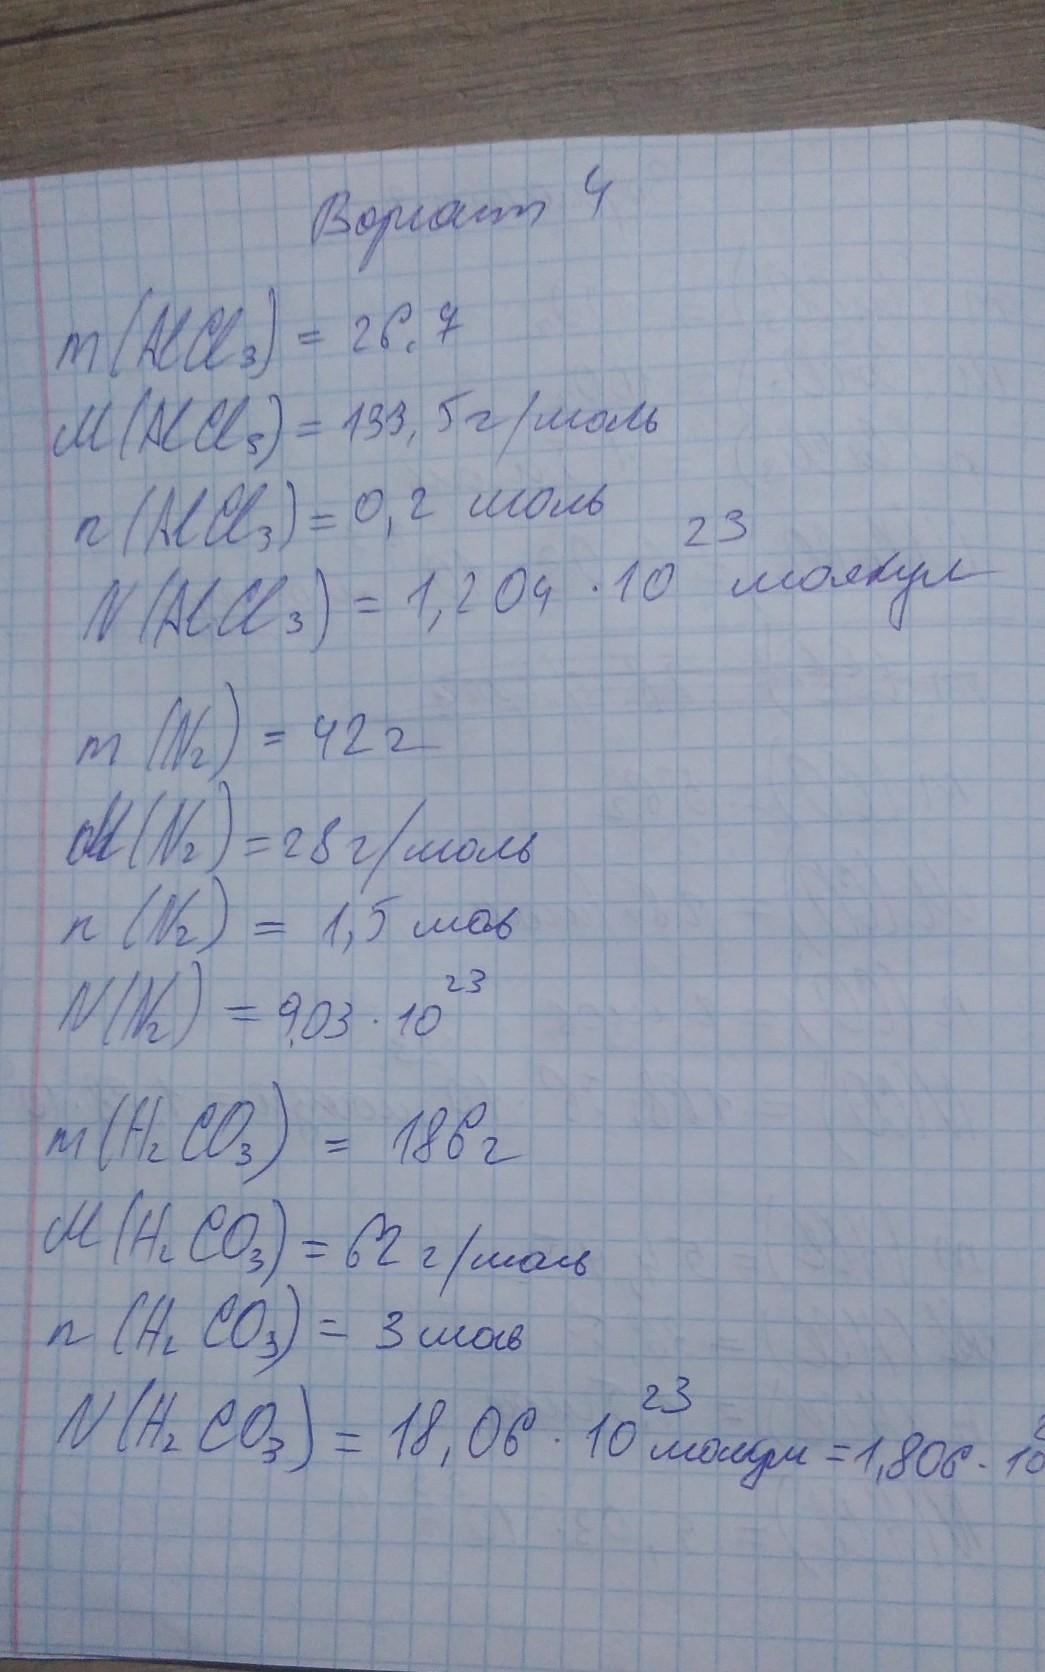 Вариант 4
m(AlCl₃) = 26,7
M(AlCl₃) = 133,5г/моль
n(AlCl₃) = 0,2 моль
N(AlCl₃) = 1,204 · 10²³ молекул
m(N₂) = 42г
M(N₂) = 28г/моль
n(N₂) = 1,5 моль
N(N₂) = 9,03 · 10²³
m(H₂CO₃) = 186г
M(H₂CO₃) = 62г/моль
n(H₂CO₃) = 3моль
N(H₂CO₃) = 18,06 · 10²³ молекул = 1,806 · 10